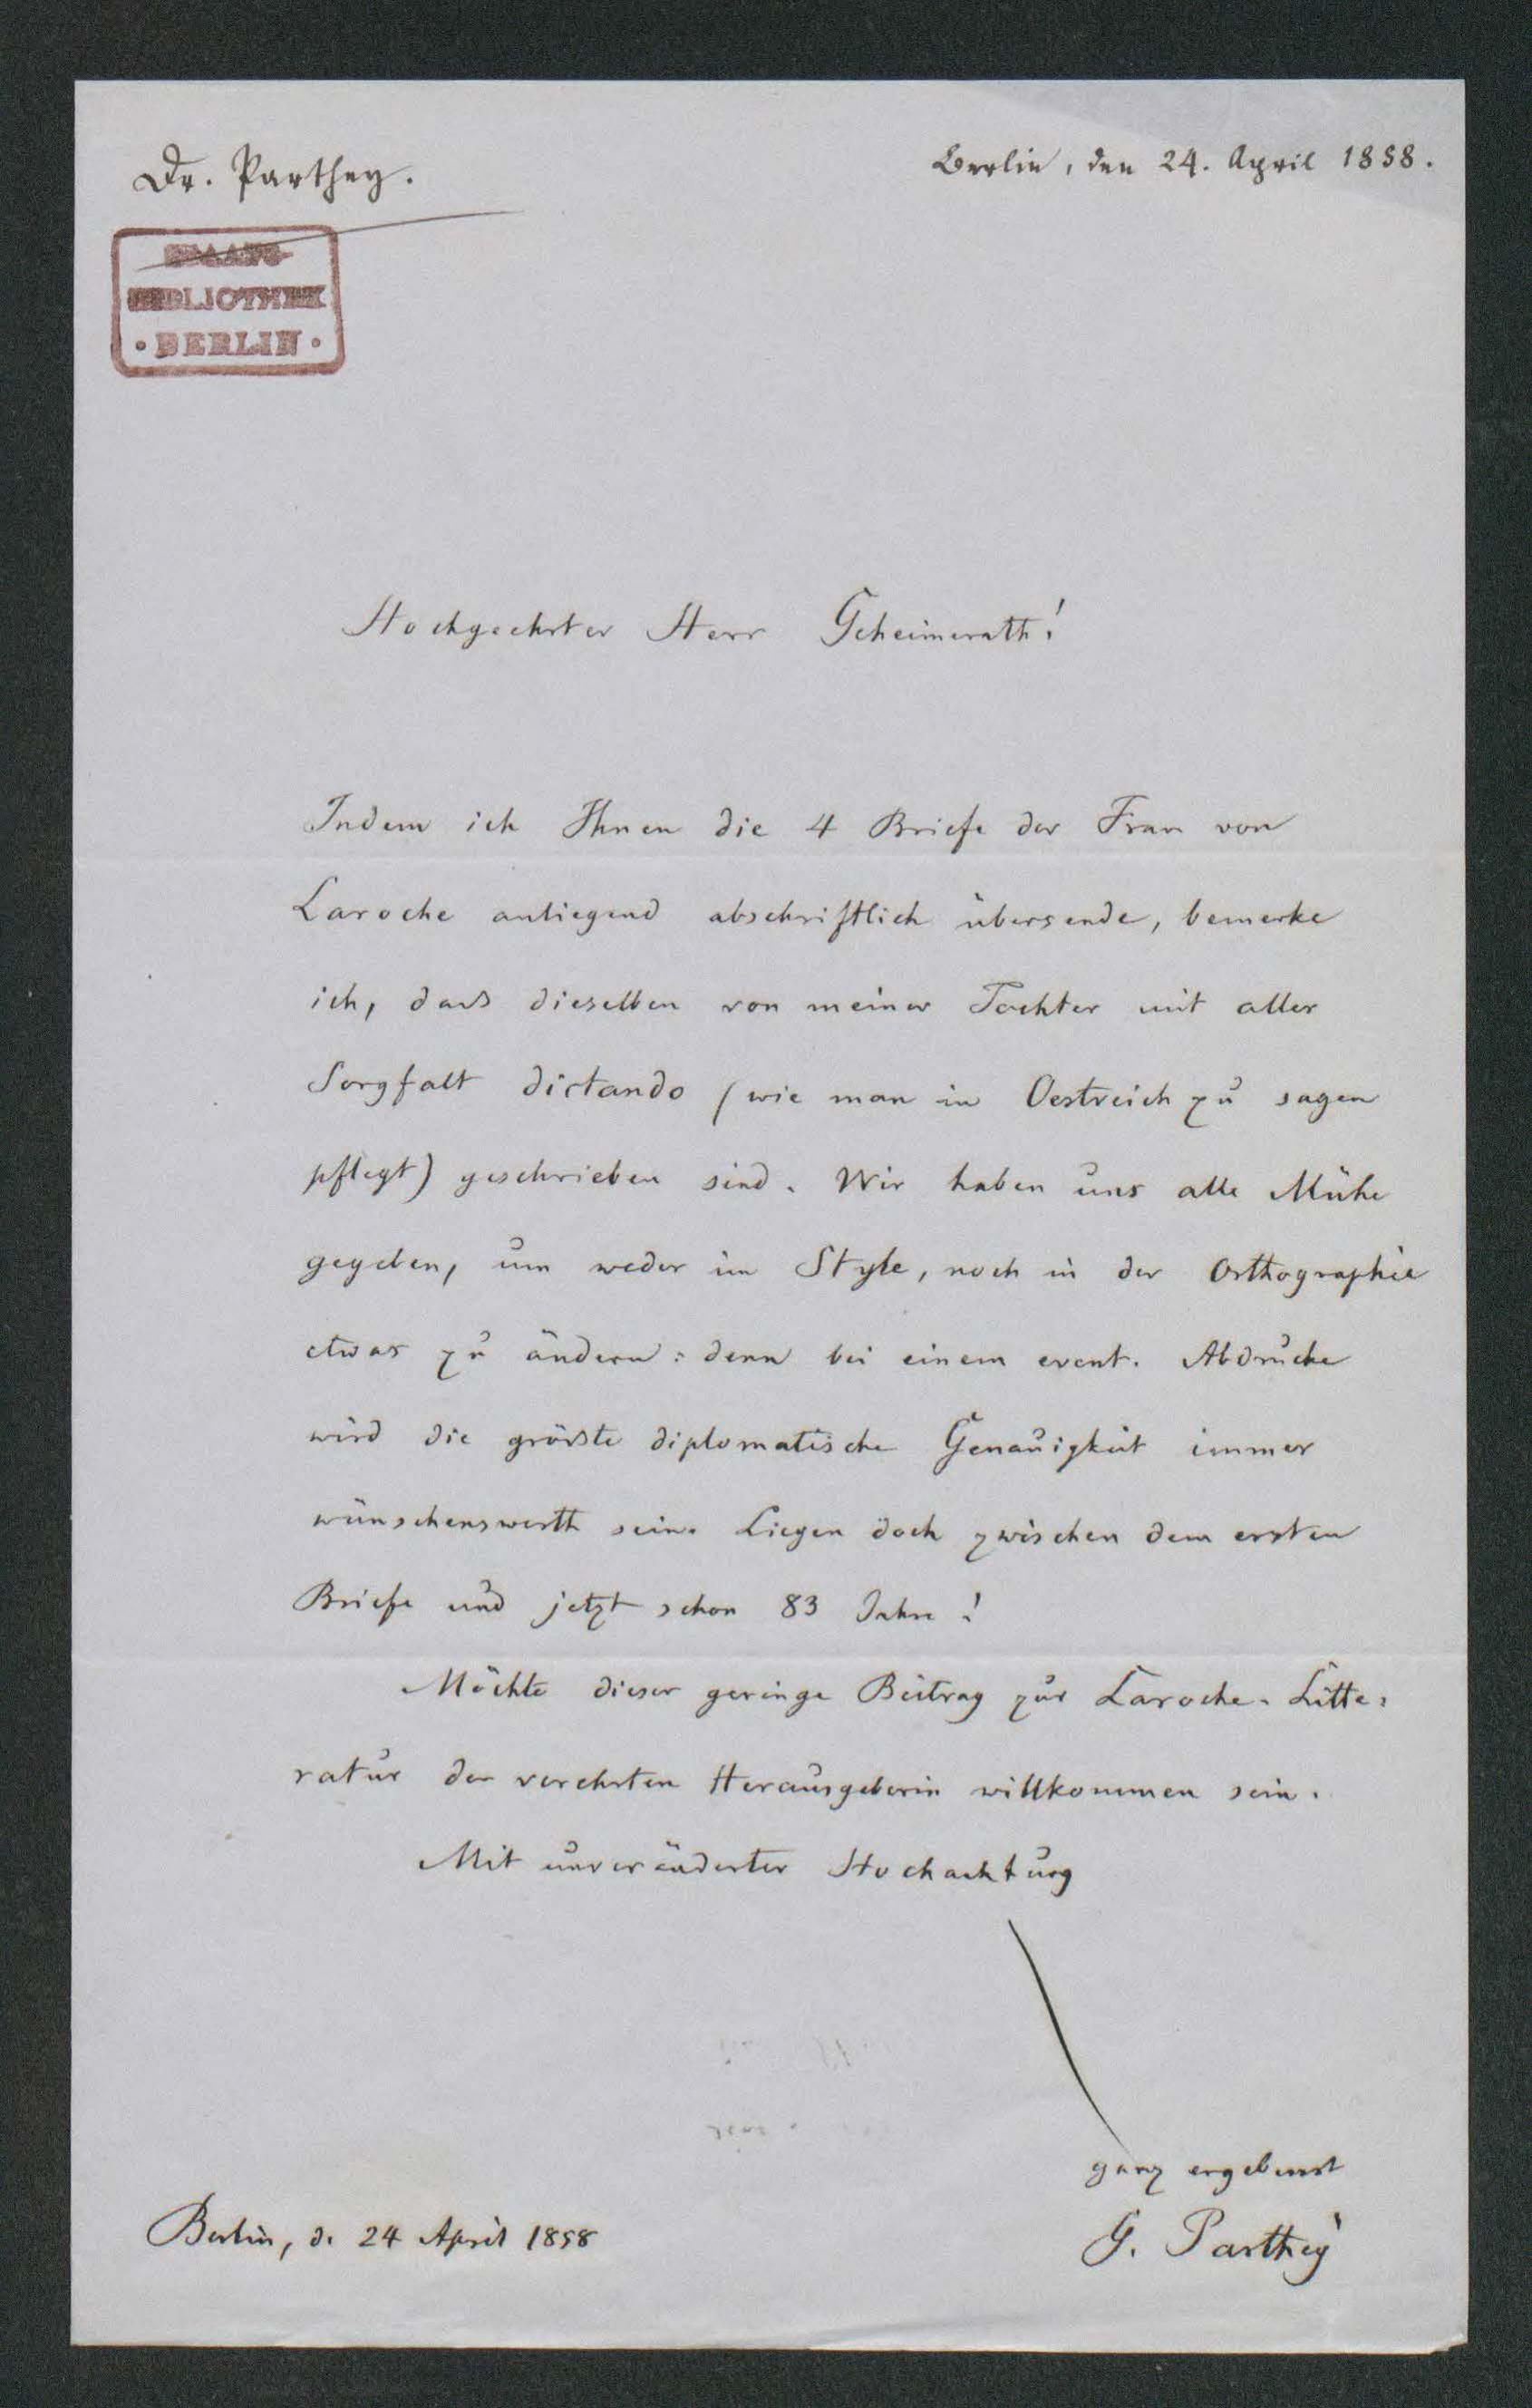 Dr. Parthey.
Berlin, den 24. April 1858.
STAATS
BIBLIOTHEK
• BERLIN •
Hochgeehrter Herr Geheimerath!
Indem ich Ihnen die 4 Briefe der Frau von
Laroche anliegend abschriftlich übersende, bemerke
ich, dass dieselben von meiner Tochter mit aller
Sorgfalt dictando (wie man in Oestreich zu sagen
pflegt) geschrieben sind. Wir haben uns alle Mühe
gegeben, um weder im Style, noch in der Orthographie
etwas zu ändern: denn bei einem event. Abdrucke
wird die grösste diplomatische Genauigkeit immer
wünschenswerth sein. Liegen doch zwischen dem ersten
Briefe und jetzt schon 83 Jahre!
Möchte dieser geringe Beitrag zur Laroche-Litte-
ratur der verehrten Herausgeberin willkommen sein.
Mit unveränderter Hochachtung
ganz ergebenst
Berlin, d. 24 April 1858
G. Parthey